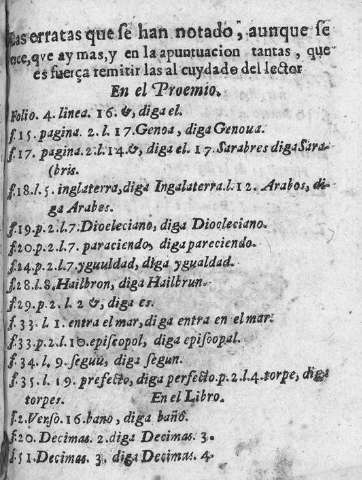 Las erratas que se han notado, aunque se
ce, qve ay mas, y en la apuntuacion tantas, que
es fuerça remitir las al cuydado del lector
En el Proemio.
Folio. 4. linea. 16. &, diga el.
f. 15. pagina. 2. l. 17. Genoa, diga Genoua.
f. 17. pagina. 2. l. 14. &, diga el. 17. Sarabres diga Sara-
(bris.
f. 18. l. 5. inglaterra, diga Ingalaterra. l. 12. Arabos, di-
ga Arabes.
f. 19. p. 2. l. 7. Diocleciano, diga Diocleciano.
f. 20. p. 2. l. 7. paraciendo, diga pareciendo.
f. 24. p. 2. l. 7. yguuldad, diga ygualdad.
f. 28. l. 8. Hailbron, diga Hailbrun.
f. 29. p. 2. l. 2 &, diga es.
f. 33. l. 1. entra el mar, diga entra en el mar.
f. 33. p. 2. l. 10. episcopol, diga episcopal.
f. 34. l. 9. seguu, diga segun.
f. 35. l. 19. prefecto, diga perfecto. p. 2. l. 4. torpe, diga
torpes. En el Libro.
f. 2. Verso. 16. bano, diga baño.
f. 20. Decimas. 2. diga Decimas. 3.
f. 51. Decimas. 3. diga Decimas. 4.